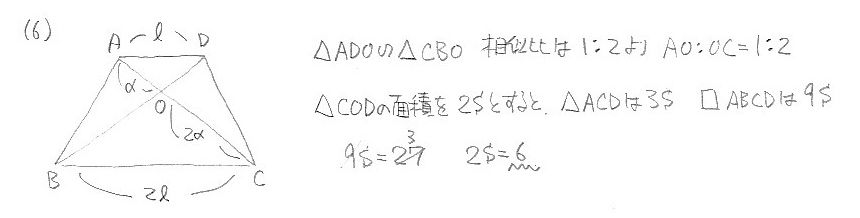 (6)
A ℓ D
△ADO∽△CBO 相似比は1:2より AO:OC=1:2
α
O
△CODの面積を2Sとすると、△ACDは3S □ABCDは9S
2α
9S=27 3 2S=6
B 2ℓ C